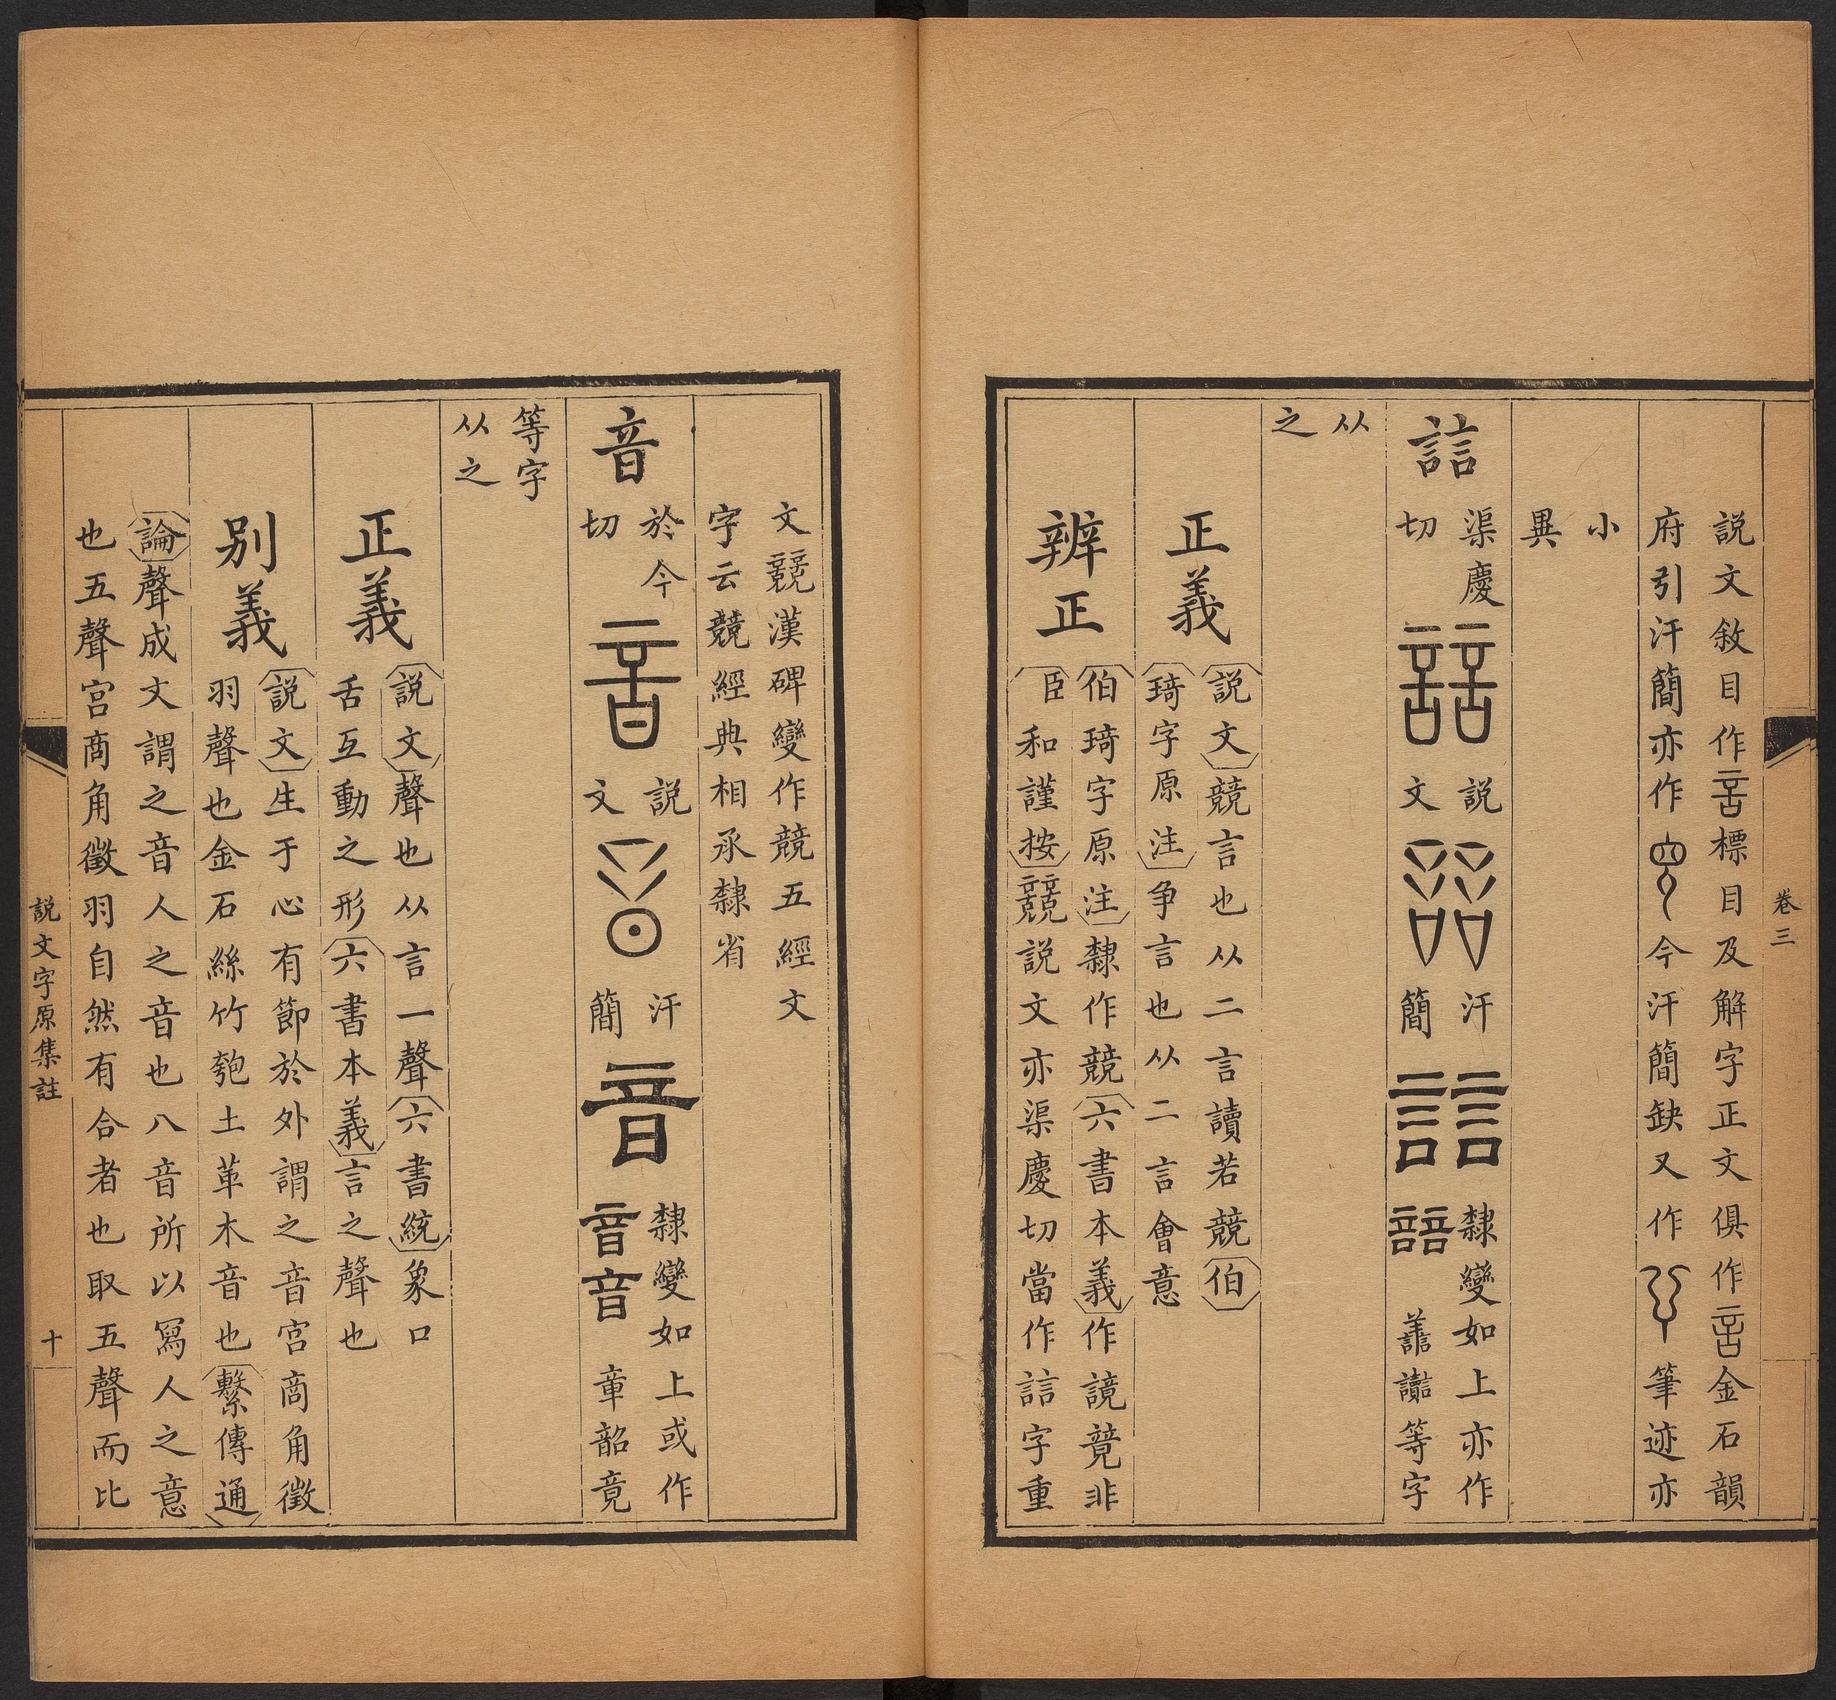 卷三
説文敘目作標目及解字正文俱作金石韻
府引汗簡亦作今汗簡缺又作筆迹亦
小
異
誩
渠慶
切
説
文
汗
簡
隸變如上亦作
等字
从
之
正義
説文競言也从二言讀若競伯
琦字原注爭言也从二言會意
辨正
伯琦字原注隸作競六書本義作竟非
臣和謹按競説文亦渠慶切當作誩字重
文競漢碑變作競五經文
字云競經典相承隸省
音
於今
切
説
文
汗
簡
隸變如上或作
音音 章韶竟
等字
从之
正義
説文聲也从言一聲六書統象口
舌互動之形六書本義言之聲也
别義
説文生于心有節於外謂之音宮商角徵
羽聲也金石絲竹匏土革木音也繫傳通
論聲成文謂之音人之音也八音所以寫人之意
也五聲宮商角徵羽自然有合者也取五聲而比
説文字原集註
十